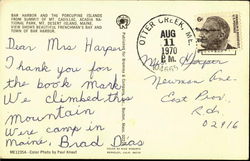 BAR HARBOR AND THE PORCUPINE ISLANDS
FROM SUMMIT OF MT. CADILLAC, ACADIA NA-
TIONAL PARK, MT. DESERT ISLAND, MAINE.
VIEW SHOWS BEAUTIFUL FRENCHMAN'S BAY AND
TOWN OF BAR HARBOR.
Dear Mrs Harper
I thank you for
the book mark
We climbed this
Mountain
We're camp in
maine, Brad Dias
OTTER CREEK, ME.
AUG
11
1970
P.M.
6¢
Mrs Harper
Newman Ave.
East Prov.
R.I.
02916
Color Photo by Paul Knaut